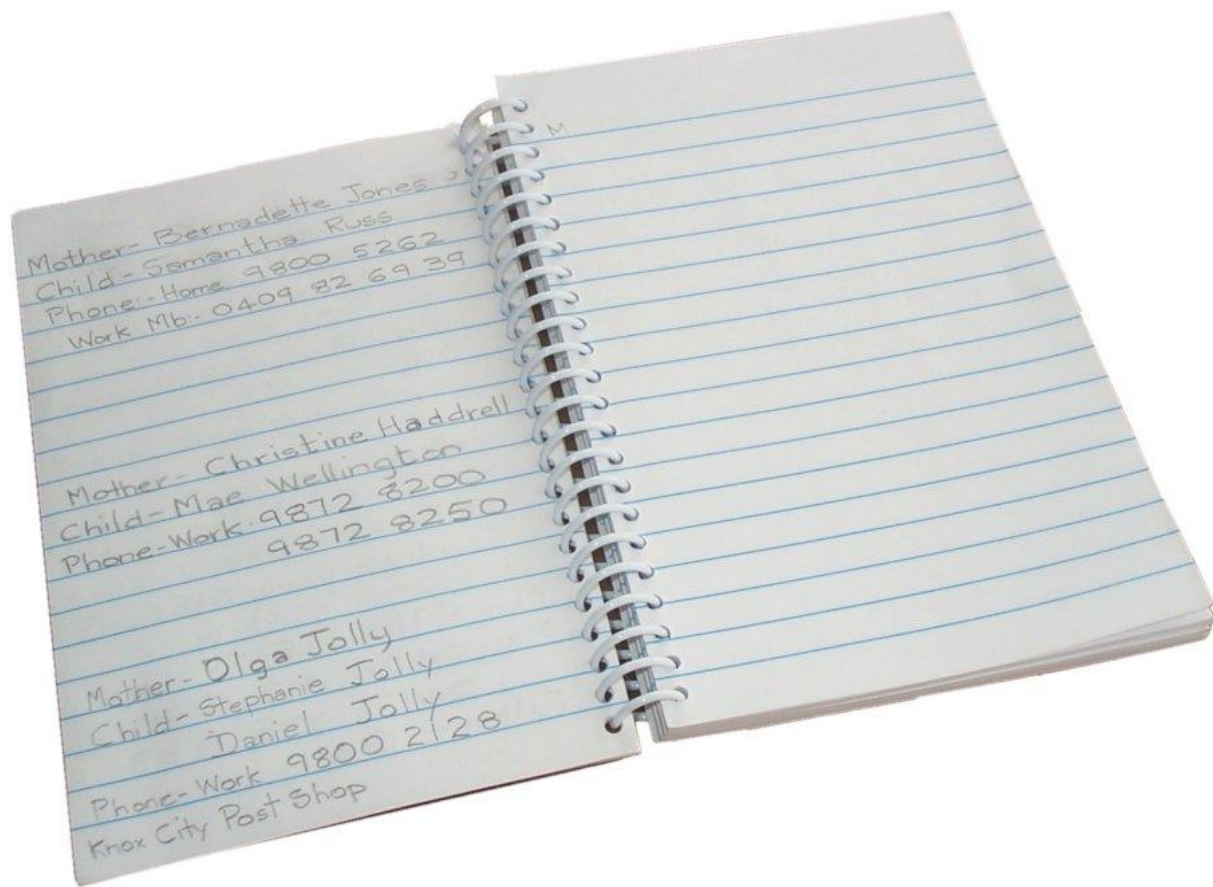 Mother- Bernadette Jones
Child - Samantha Russ
Phone:- Home 9800 5262
Work Mb:- 0409 82 69 39
Mother- Christine Haddrell
Child- Mae Wellington
Phone-Work: 9872 8200
9872 8250
Mother- Olga Jolly
Child- Stephanie Jolly
Daniel Jolly
Phone-Work 9800 2128
Knox City Post Shop
M